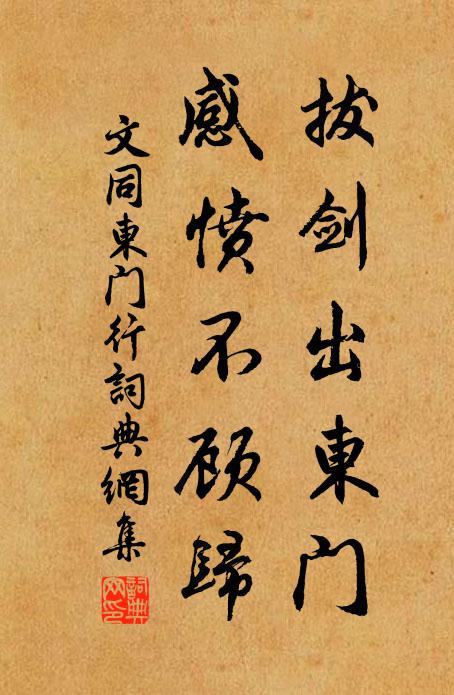 拔剑出東門
感憤不顾歸
文同東门行詞典網集
詞典网印